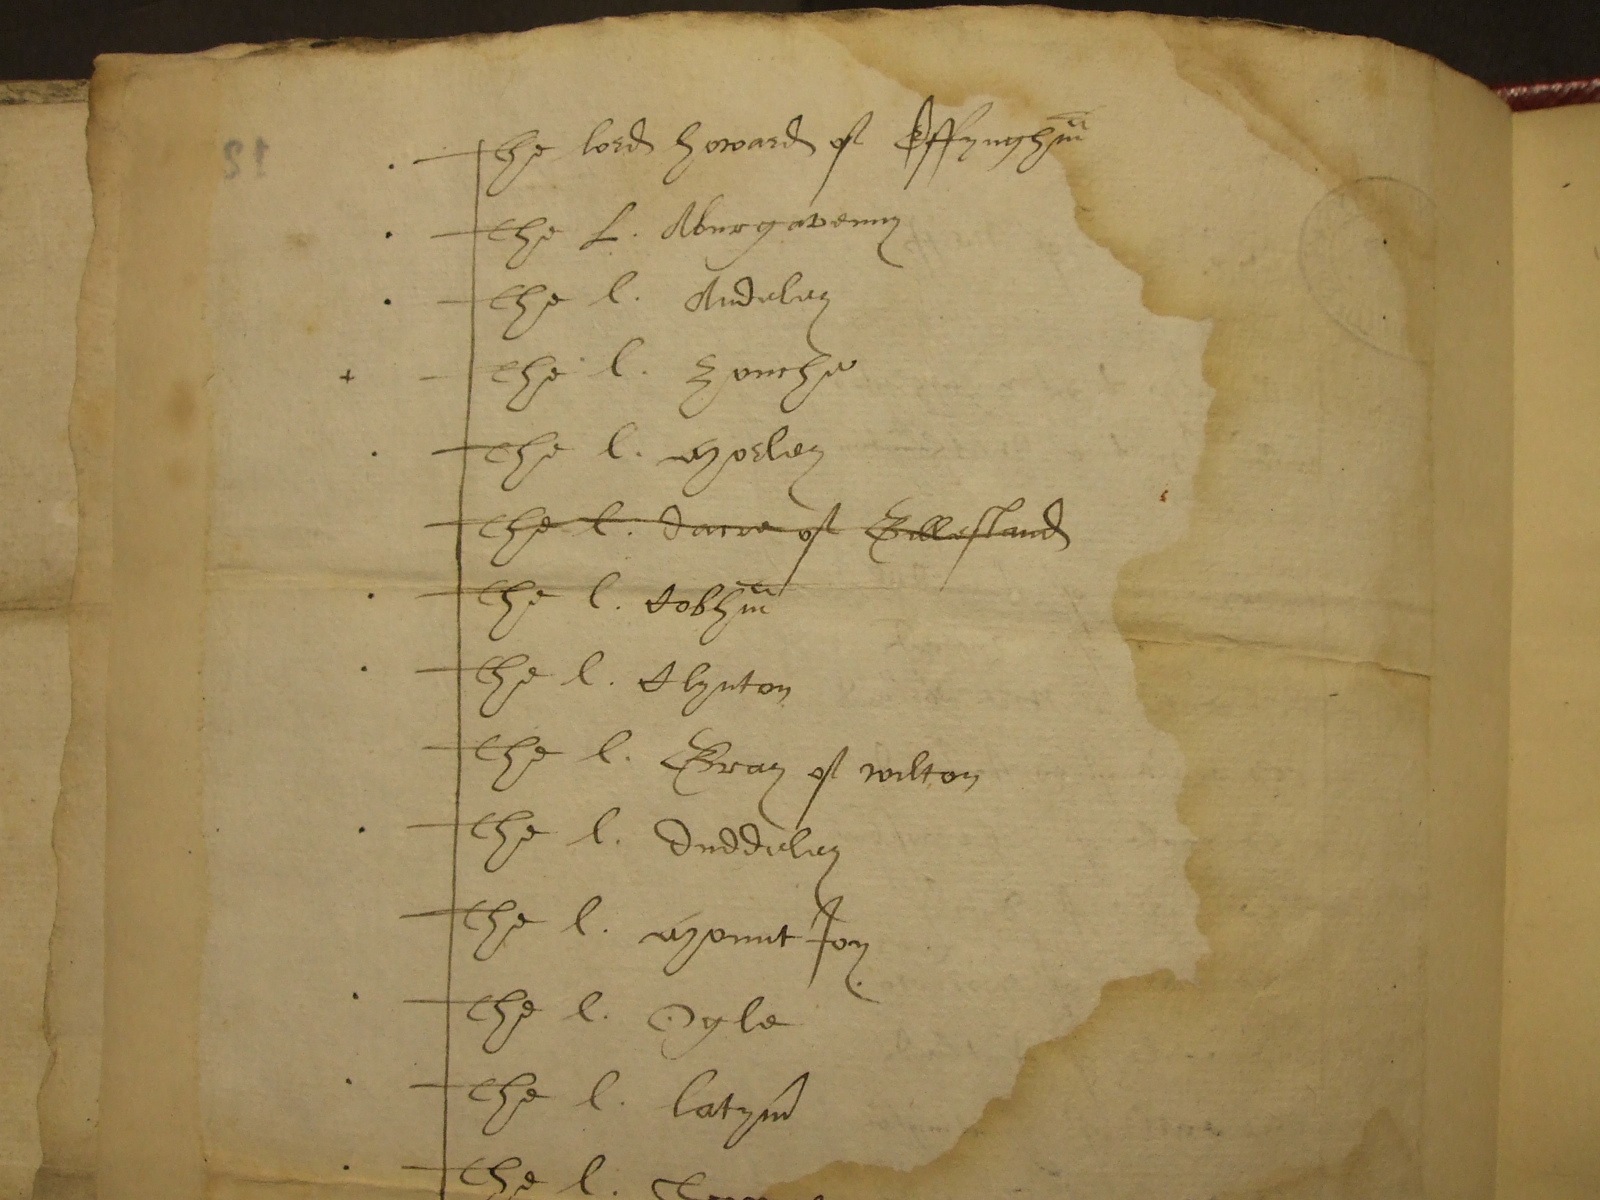 the lord howard of Effynghm̃
the L. Aburgavenny
the l. Audeley
the l. Zouche
the l. Morley
the l. dacre of Gillesland
the l. Cobhm̃
the l. Clynton
the l. Gray of wilton
the l. duddeley
the l. Mountjoy
the l. Ogle
the l. latym
the l.
12